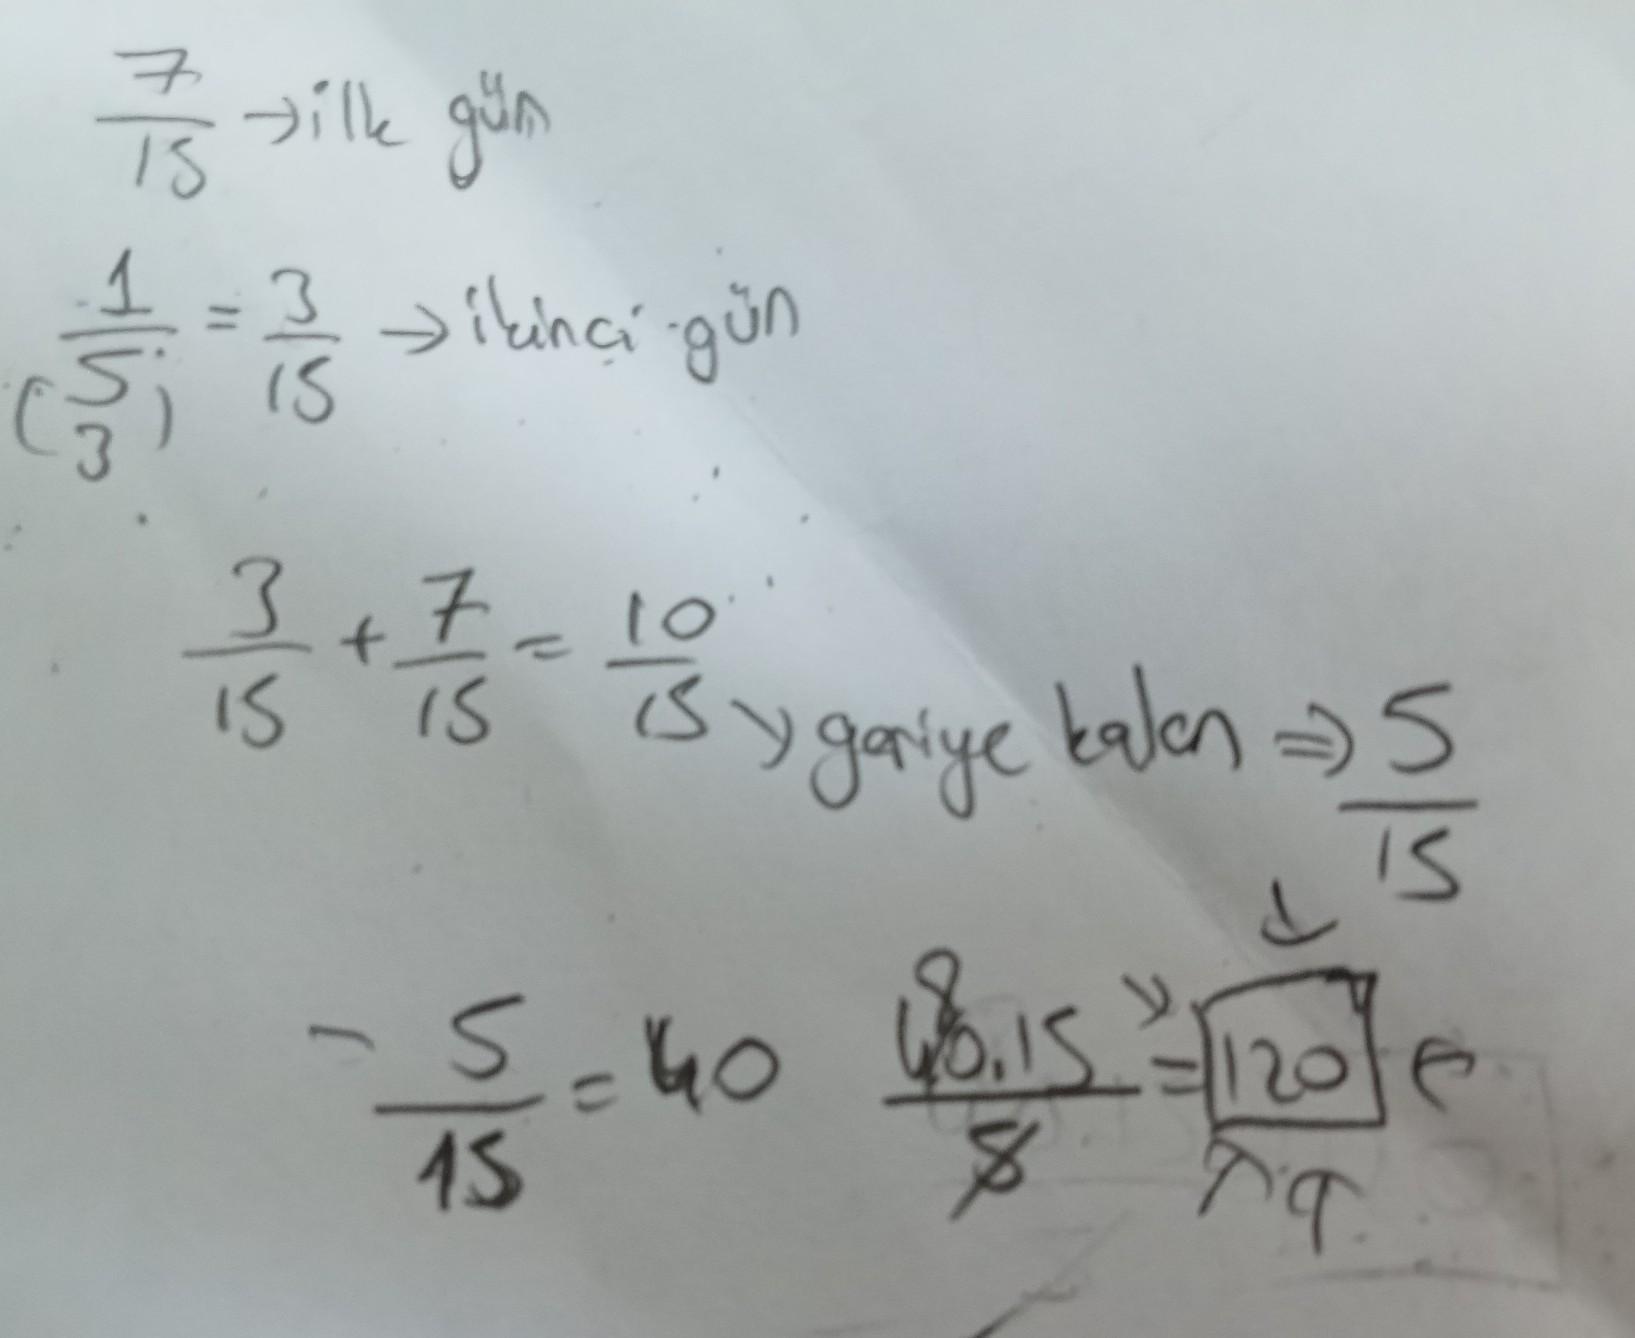 7/15 → ilk gün
1/5 = 3/15 → ikinci gün
(3)
3/15 + 7/15 = 10/15 → geriye kalan ⇒ 5/15
- 5/15 = 40   40.15/5 = 120
8